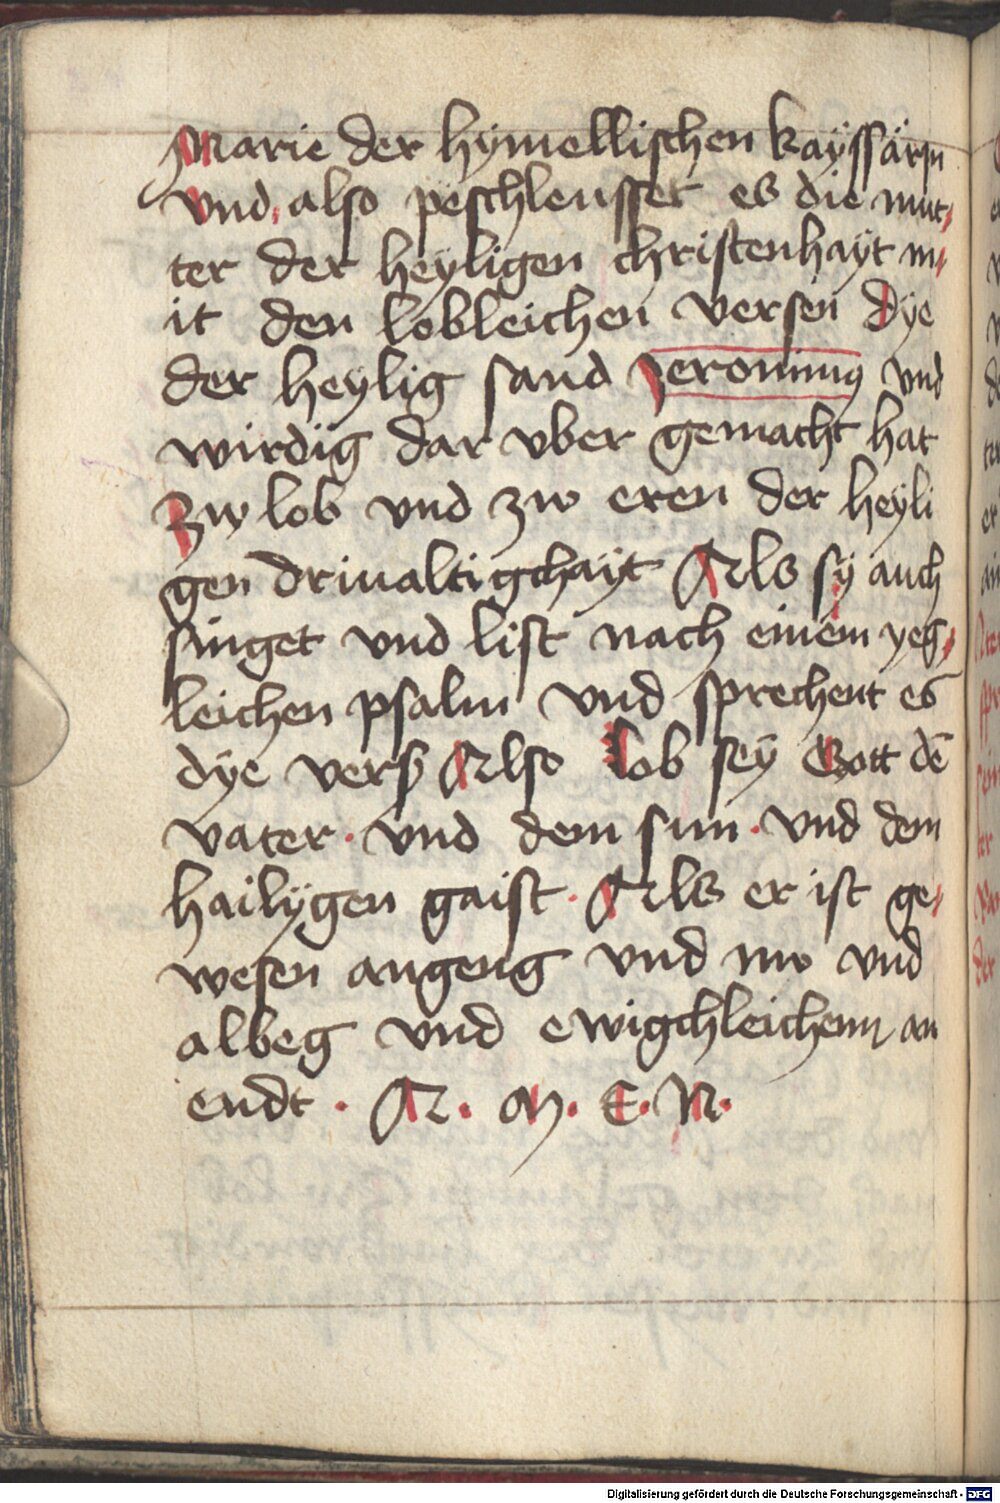 Marie der hymellischen kayssärin
vnd also peschleusset es die mut
ter der heyligen christenhayt m
it den lobleichen versen Dye
der heylig sand Jeronimus vnd
wirdig dar vber gemacht hat
Zw lob vnd zw eren der heyli
gen driualtigchayt Als sy auch
singet vnd list nach einem yeg
leichen psalm vnd sprechent es
dye vers Also lob sey Gott dē
vater · vnd dem sun · vnd dem
hailygen gaist · Als er ist ge
wesen angeng vnd nw vnd
albeg vnd ewigchleichenn an
endt · A · M · E · N ·
Digitalisierung gefördert durch die Deutsche Forschungsgemeinschaft - DFG